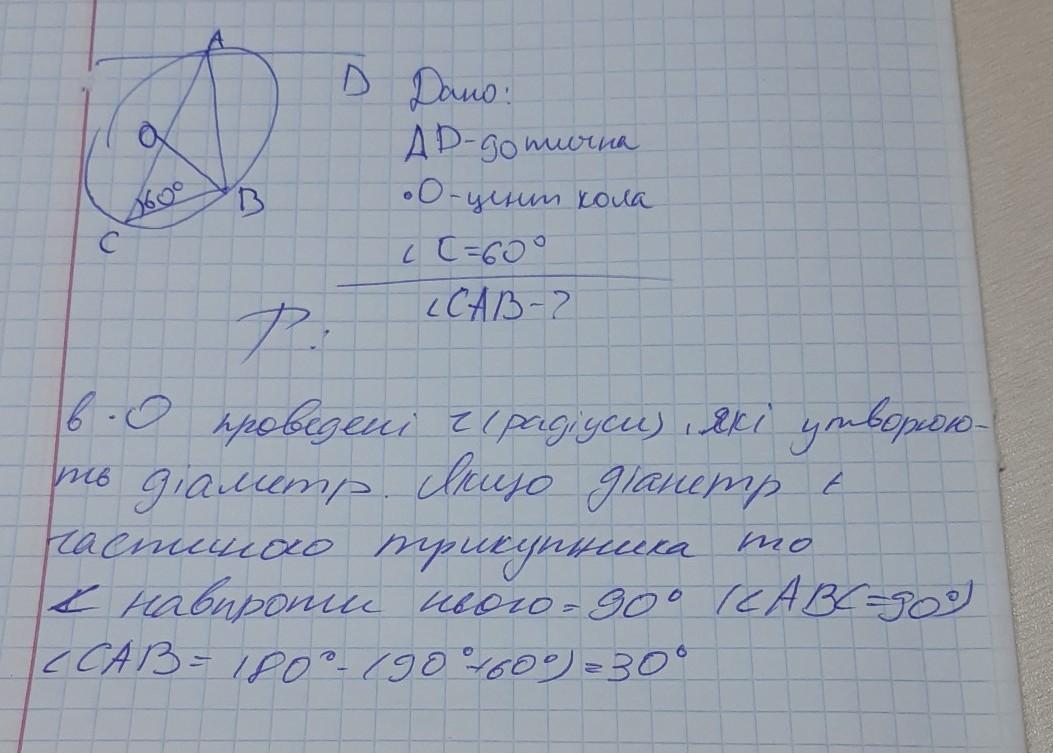 A
D
O
60°
B
C
Дано:
AD-дотична
•О-цент кола
∠C=60°
∠CAB-?
Р:
в ·О проведені r(радіуси), які утворюю-
ть діаметр. Якщо діаметр є
частиною трикутника то
∠ навпроти нього=90° (∠ABC=90°)
∠CAB= 180°-(90°+60°)=30°